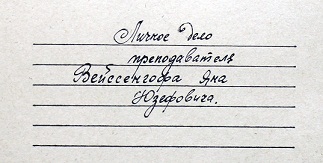 Личное дело
преподаватель
Вейссенгофа Яна
Юзефовича.